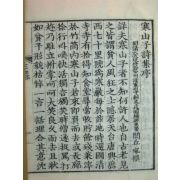 寒山子詩集序
詳夫寒山子者不知何許人也自古老見
之皆謂貧人風狂之士隱居天台唐興縣西
七十里號為寒巖每於茲地時還國清
寺寺有拾得知食堂尋常收貯餘殘菜滓
於竹筒內寒山若來即負而去或長廊徐
行叫喚快活獨言獨笑時僧遂捉罵打
趁乃駐立撫掌呵呵大笑良久而去且狀
如貧子形貌枯悴一言一氣理合其意沉